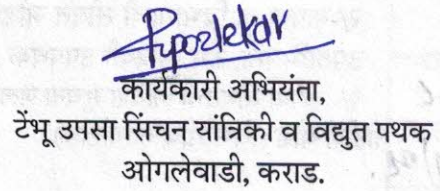 कार्यकारी अभियंता,
टेंभू उपसा सिंचन यांत्रिकी व विद्युत पथक
ओगलेवाडी, कराड.